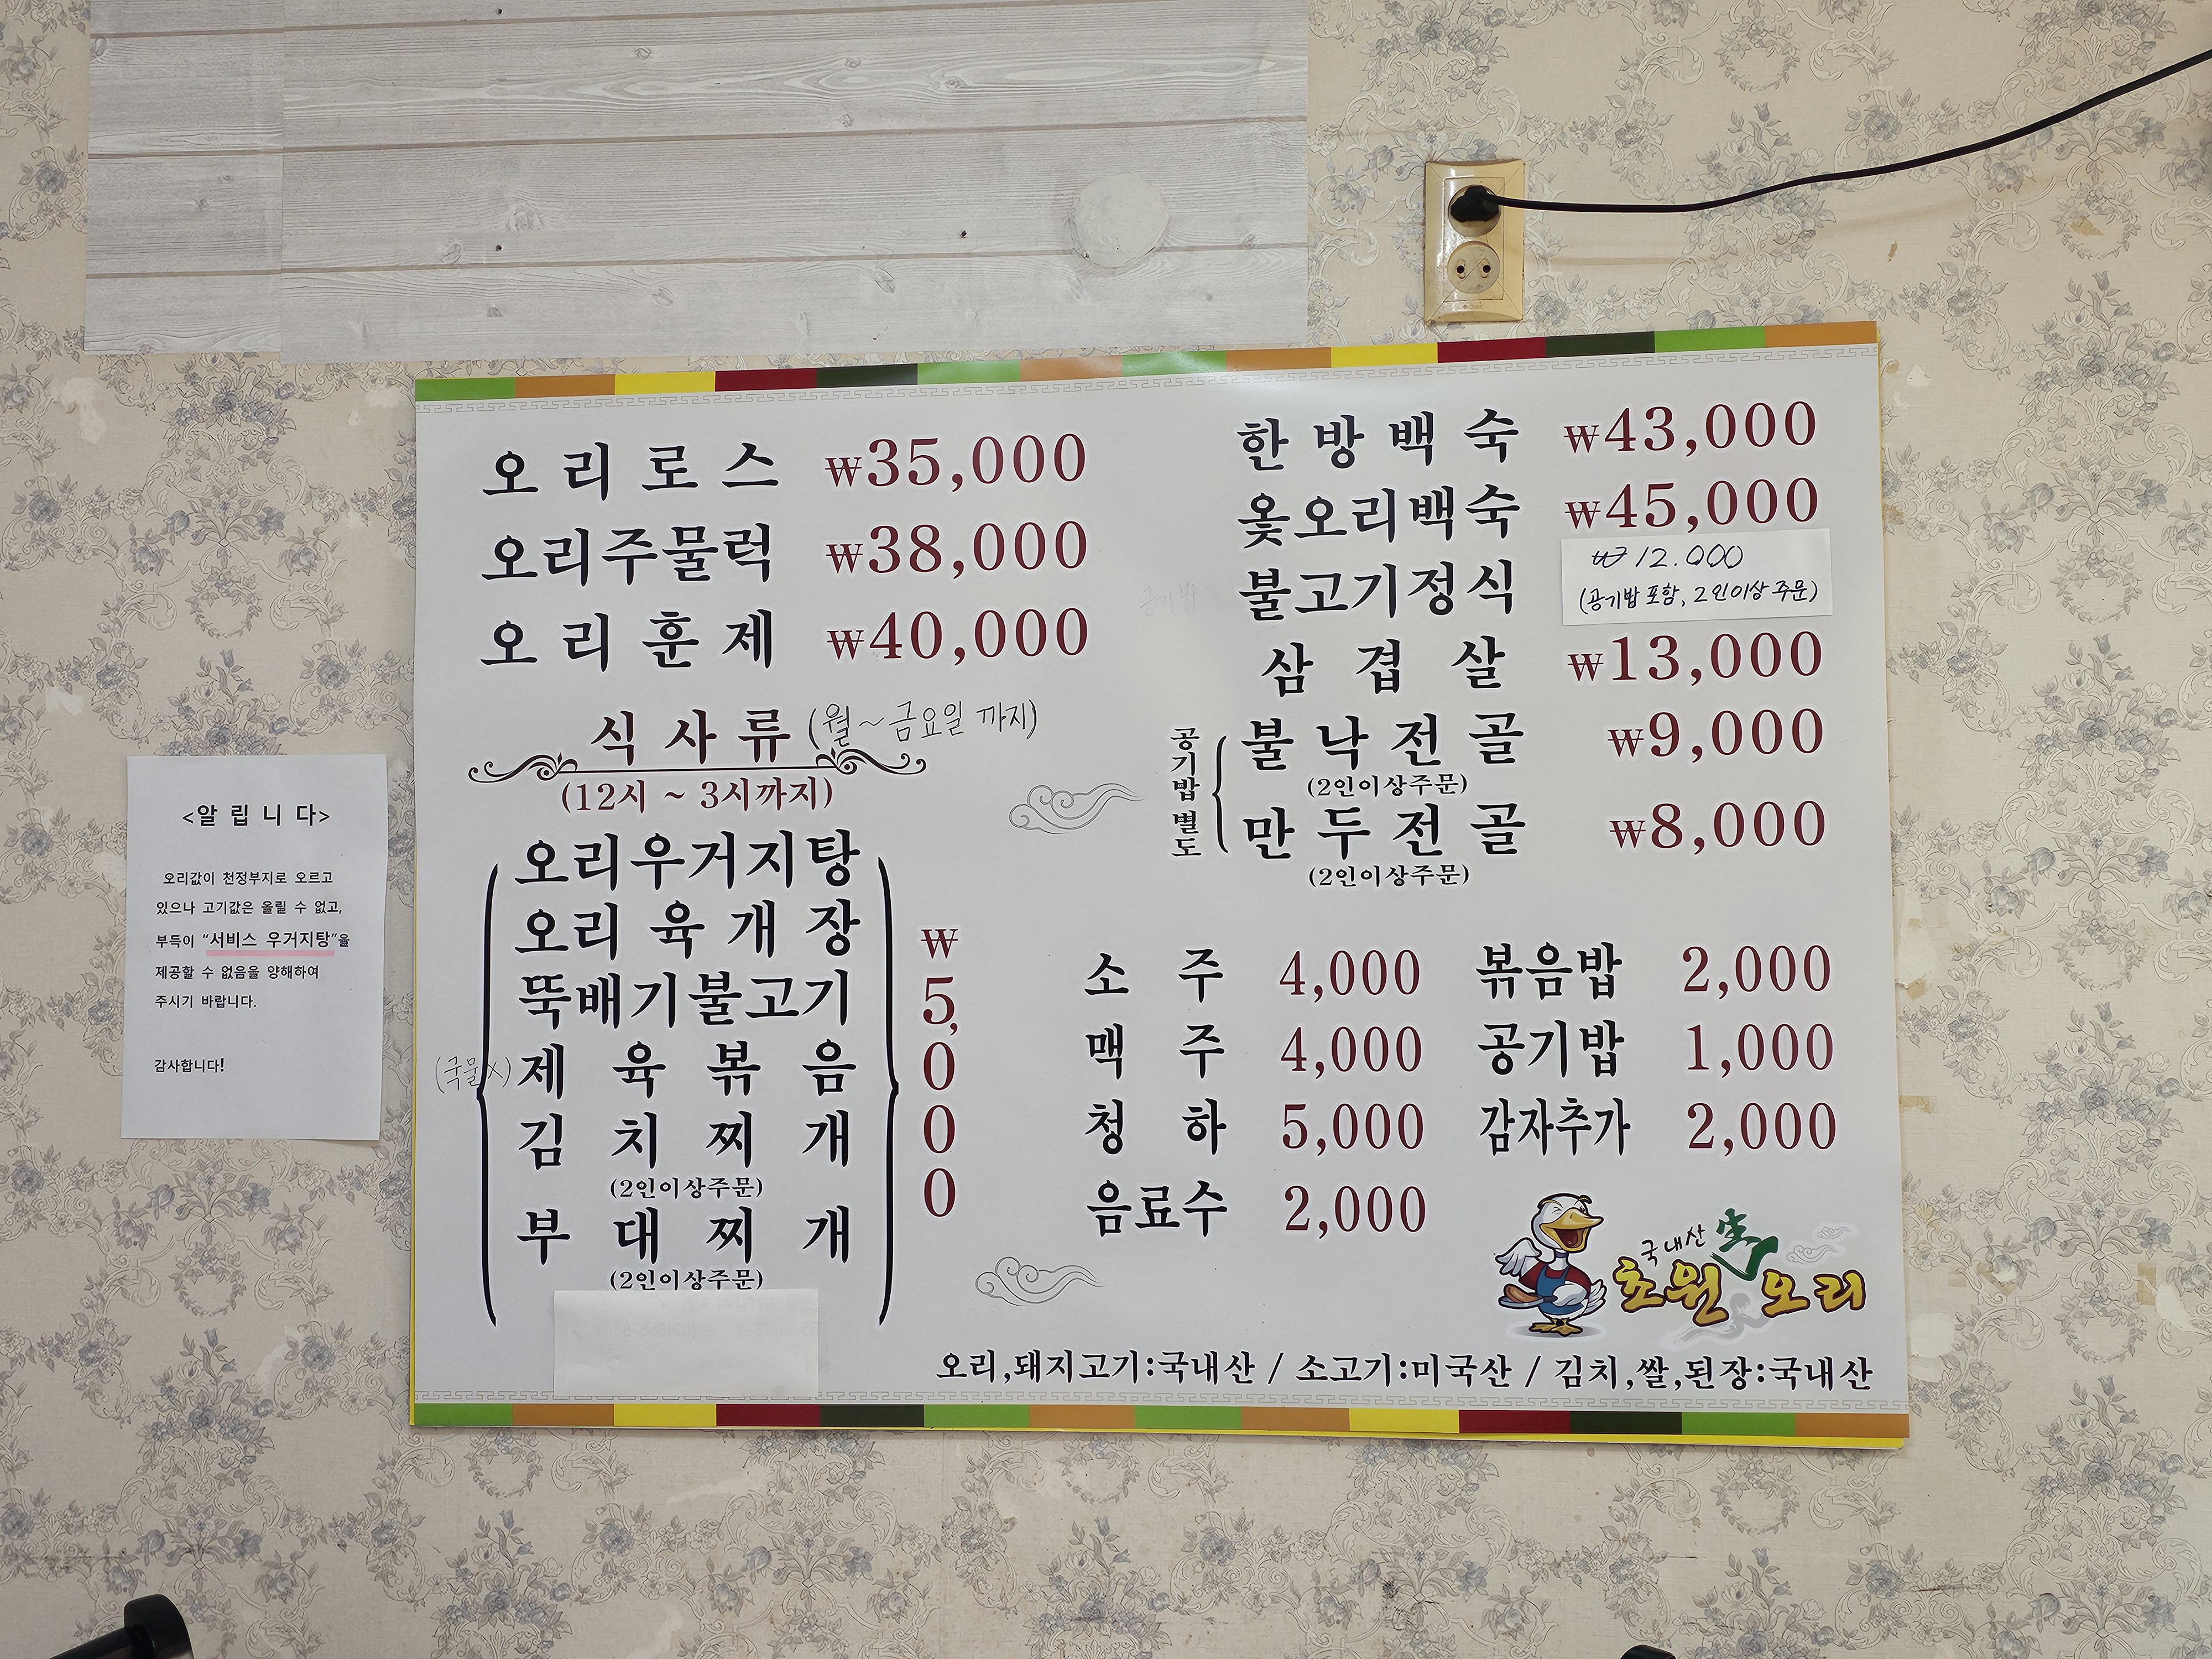 오리로스 ₩35,000
오리주물럭 ₩38,000
오리훈제 ₩40,000
식사류 (월~금요일 까지)
(12시 ~ 3시까지)
오리우거지탕
오리육개장
뚝배기불고기
(국물X) 제육볶음
김치찌개
(2인이상주문)
부대찌개
(2인이상주문)
₩5,000
한방백숙 ₩43,000
옻오리백숙 ₩45,000
불고기정식 ₩12.000
(공기밥 포함, 2인이상 주문)
삼겹살 ₩13,000
공기밥별도
불낙전골 ₩9,000
(2인이상주문)
만두전골 ₩8,000
(2인이상주문)
소주 4,000
맥주 4,000
청하 5,000
음료수 2,000
볶음밥 2,000
공기밥 1,000
감자추가 2,000
국내산 生
초원 오리
오리,돼지고기:국내산 / 소고기:미국산 / 김치,쌀,된장:국내산
<알 립 니 다>
오리값이 천정부지로 오르고
있으나 고기값은 올릴 수 없고,
부득이 “서비스 우거지탕”을
제공할 수 없음을 양해하여
주시기 바랍니다.
감사합니다!